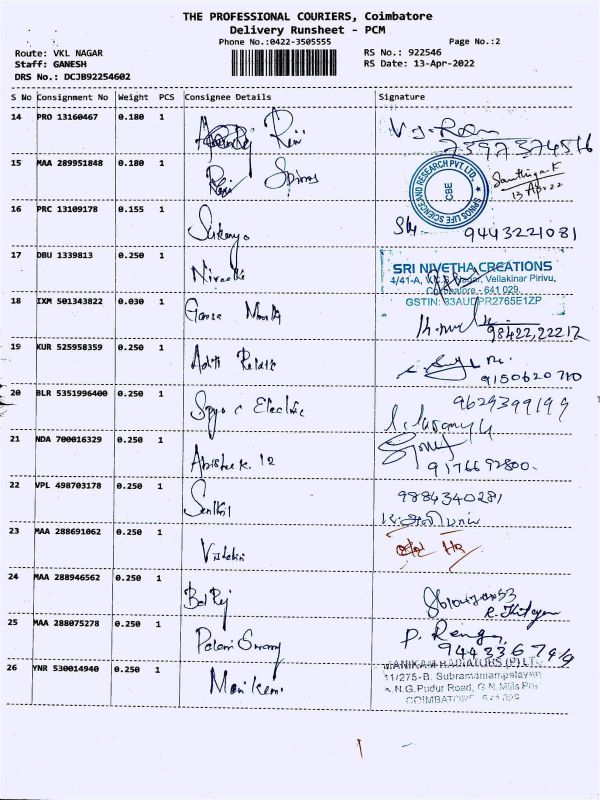 THE PROFESSIONAL COURIERS, Coimbatore
Delivery Runsheet - PCM
Phone No.:0422-3505555
Page No.:2
Route: VKL NAGAR
RS No.: 922546
Staff: GANESH
RS Date: 13-Apr-2022
DRS No.: DCJB92254602
S No Consignment No Weight PCS Consignee Details Signature
14 PRO 13160467 0.180 1
7397374516
15 MAA 289951848 0.180 1 Spiros
SPINOS LIFE SCIENCE AND RESEARCH PVT LTD. CBE
13 Apr 22
16 PRC 13109178 0.155 1 Sukanya
9443221081
17 DBU 1339813 0.250 1 Nivedha
SRI NIVETHA CREATIONS
4/41-A, Vellakinar Pirivu,
Coimbatore - 641 029.
GSTIN: 33AUDPR2765E1ZP
18 IXM 501343822 0.030 1
98422,22212
19 KUR 525958359 0.250 1
9150620710
20 BLR 5351996400 0.250 1 Electric
9629399199
21 NDA 700016329 0.250 1 Abishek. 12
9176692800.
22 VPL 498703178 0.250 1 Senthil
9884340281
23 MAA 288691062 0.250 1
24 MAA 288946562 0.250 1 Bal Raj
25 MAA 288075278 0.250 1 Palani Swamy
P. Rengu
26 YNR 530014940 0.250 1 Manikam
MANIKAM RADIATORS (P) LTD.
11/275-B, Subramaniampalayam
N.G.Pudur Road, G.N.Mills Post
COIMBATORE - 641 029